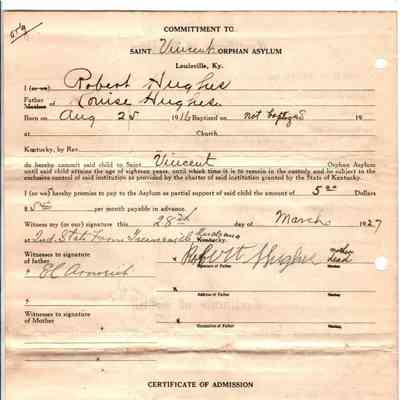 COMMITMENT TO
SAINT Vincent ORPHAN ASYLUM
Louisville, Ky.
I (or we) Robert Hughes
Father
Mother of Louise Hughes
Born on Aug 25 1916 Baptised on not baptized 19
at Church
Kentucky, by Rev.
do hereby commit said child to Saint Vincent Orphan Asylum
until said child attains the age of eighteen years, until which time it is to remain in the custody and be subject to the
exclusive control of said institution as provided by the charter of said institution granted by the State of Kentucky.
I (or we) hereby promise to pay to the Asylum as partial support of said child the amount of 5.00 Dollars
$ 5.00 per month payable in advance.
Witness my (or our) signature this 28 day of March 1927
at Ind. State Farm Indiana
Kentucky.
Witnesses to signature
of father
Robert Hughes mother
dead
Signature of Father
Mother
Address of Father
Mother
Witnesses to signature
of Mother
Occupation of Father
Mother
CERTIFICATE OF ADMISSION